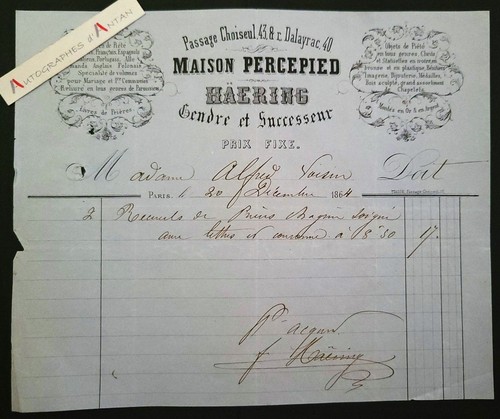 AUTOGRAPHES d'ANTAN
Passage Choiseul, 43, & r. Dalayrac, 40
MAISON PERCEPIED
HÄERING
Gendre et Successeur
PRIX FIXE.
de Piété
Français, Espagnols
Anglais Polonais
Spécialité de volumes
pour Mariage et 1re Communion
Reliure en tous genres de Paroissiens
Livres de Prières
Objets de Piété
en tous genres, Christ
et Statuettes en
et en plastique, Bénitiers
Imagerie, Bijouterie, Médailles,
Bois sculpté, grand assortiment
Chapelets
Montés en Or & en Argent
Madame Alfred Voisin Doit
PARIS, le 20 Décembre 1864
2 Recueils de Prières Chagrin Soigné
avec lettres et couronne à 8"50 17"
Pr acquit
Häering